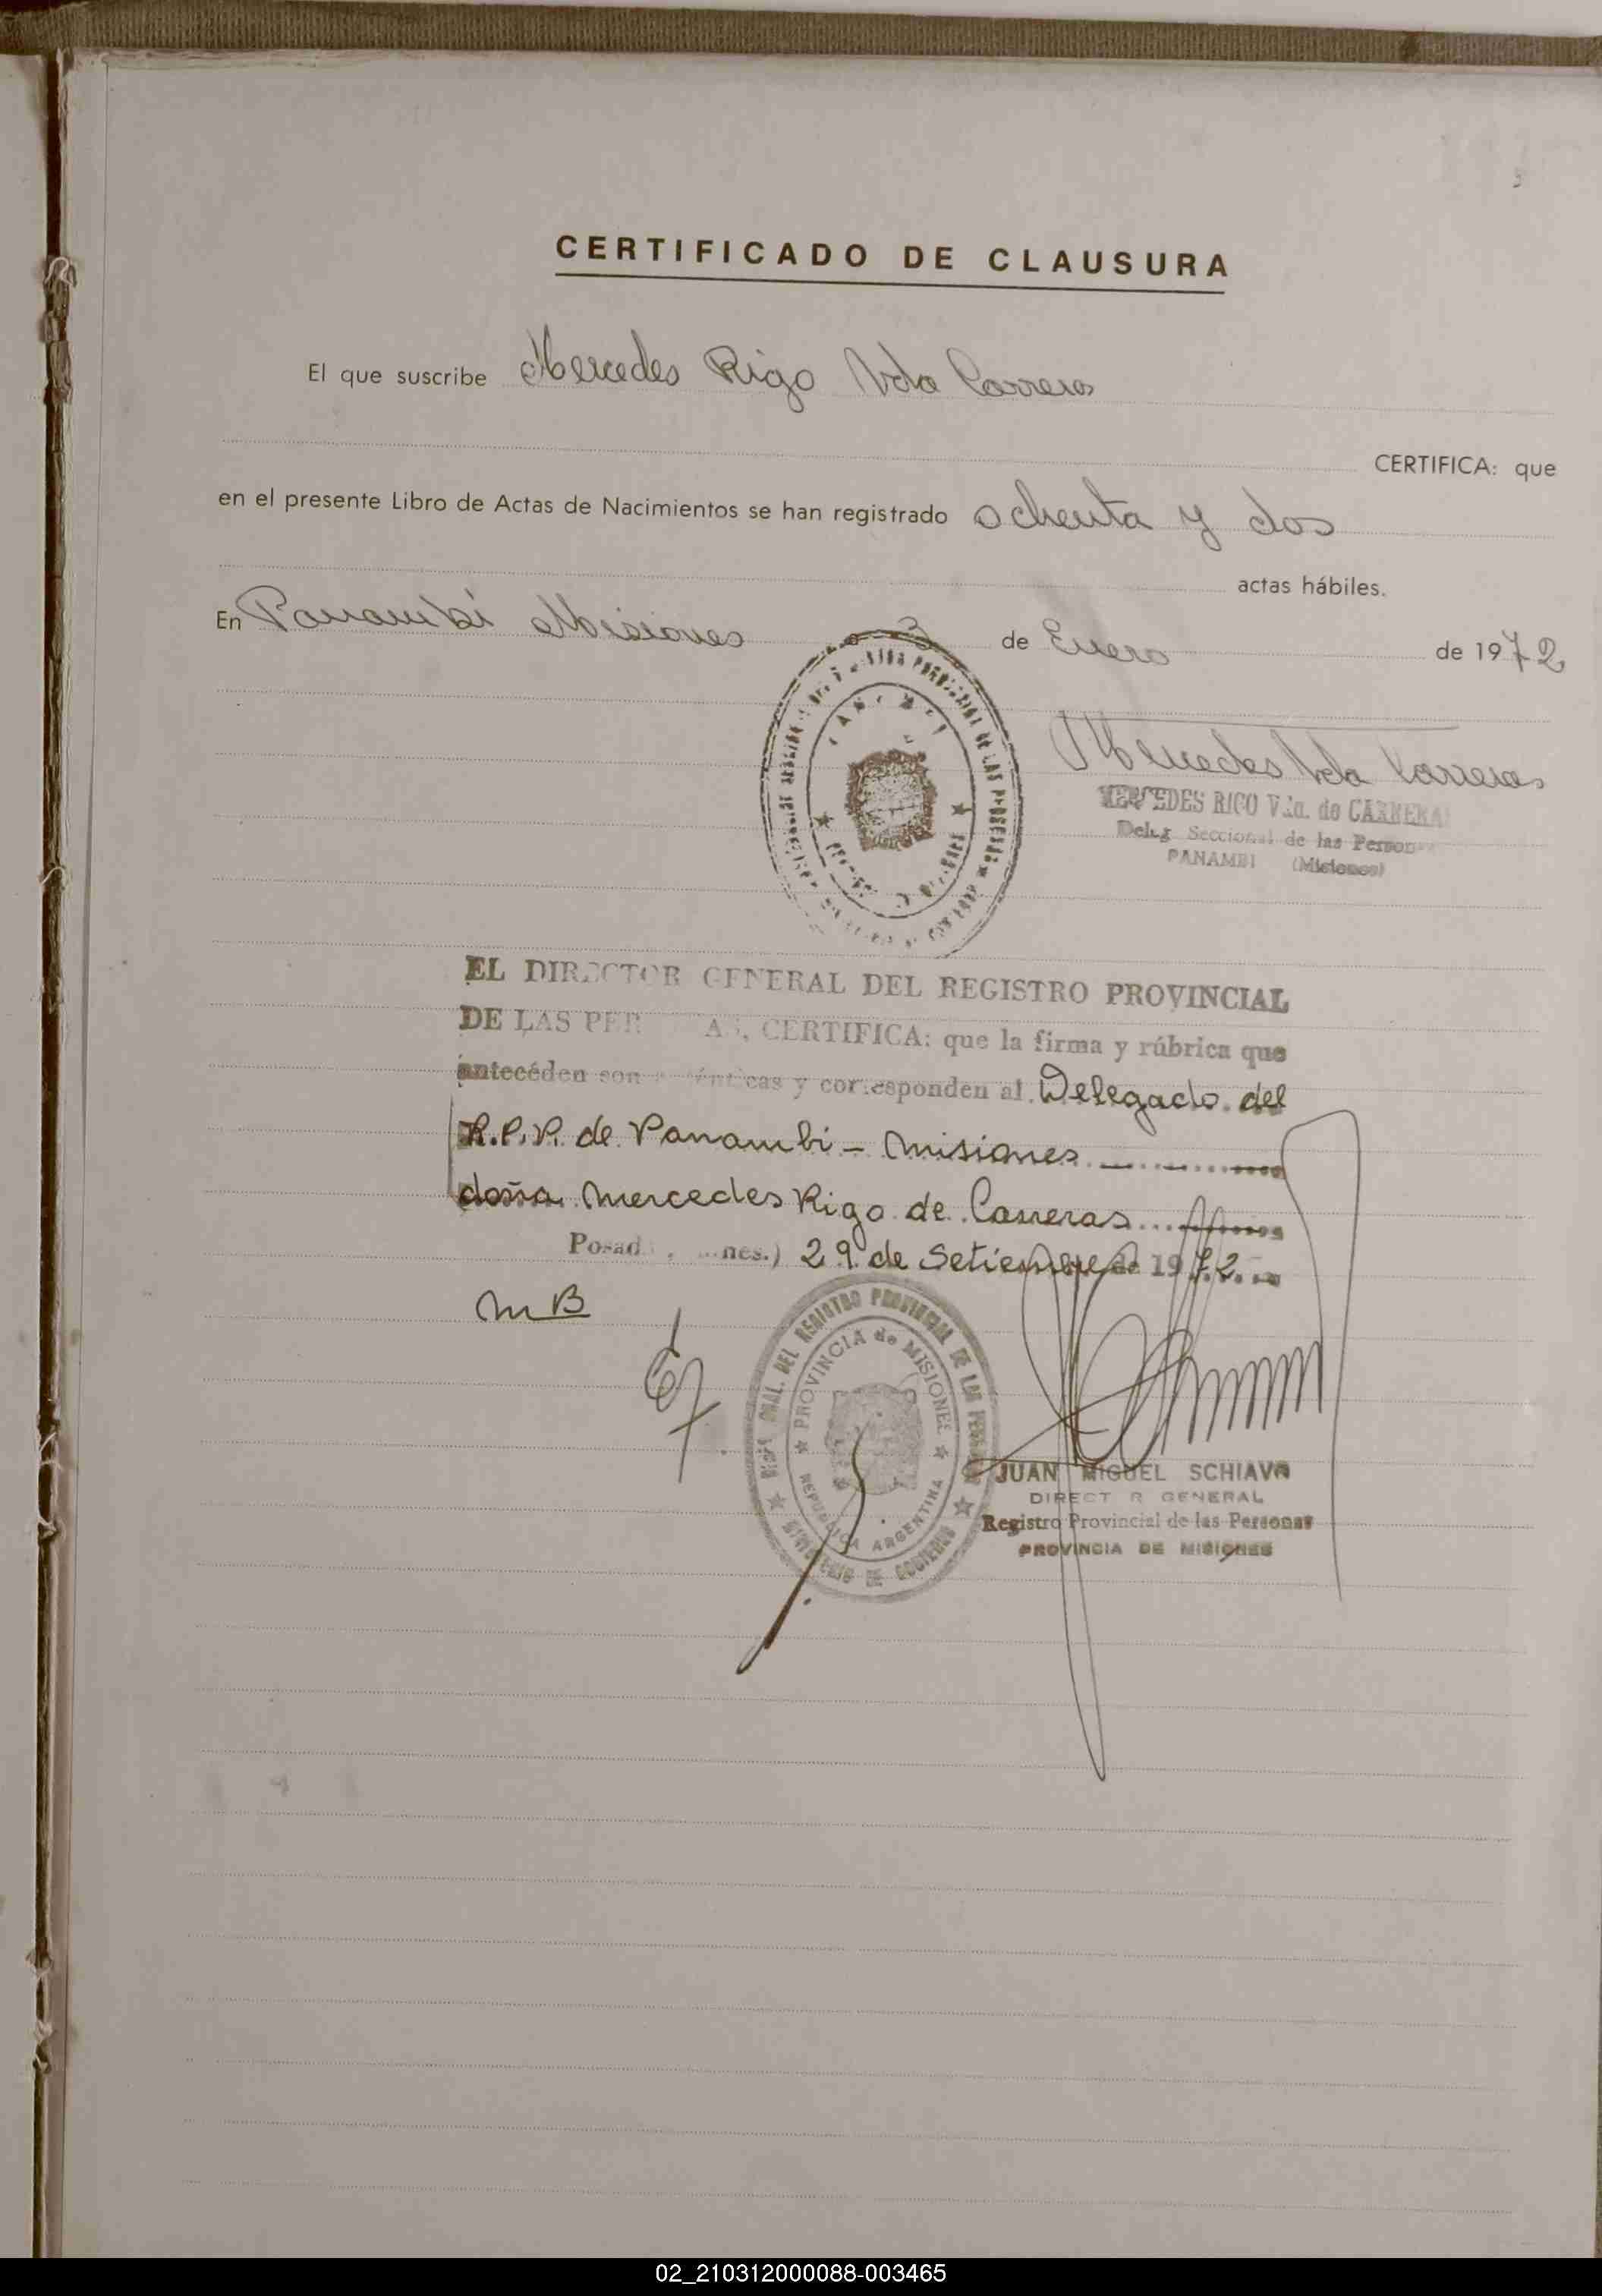 CERTIFICADO DE CLAUSURA
El que suscribe Mercedes Rigo Vda Carreras
CERTIFICA: que
en el presente Libro de Actas de Nacimientos se han registrado ochenta y dos
actas hábiles.
En Panambí Misiones a 3 de Enero de 1972
Mercedes Vda Carreras
MERCEDES RIGO Vda. de CARRERA
Deleg Seccional de las Person
PANAMBI (Misiones)
EL DIRECTOR GENERAL DEL REGISTRO PROVINCIAL
DE LAS PER AS, CERTIFICA: que la firma y rúbrica que
anteceden son énticas y corresponden al Delegado del
R.P.P. de Panambi - Misiones
doña Mercedes Rigo de Carreras
Posad , nes.) 29 de Setiembre de 1972
MB
DIREC. GRAL. DEL REGISTRO PROVINCIAL DE LAS PERSONAS
PROVINCIA de MISIONES
REPUBLICA ARGENTINA
MINISTERIO DE GOBIERNO
JUAN MIGUEL SCHIAVO
DIRECT R GENERAL
Registro Provincial de las Personas
PROVINCIA DE MISIONES
02_210312000088-003465